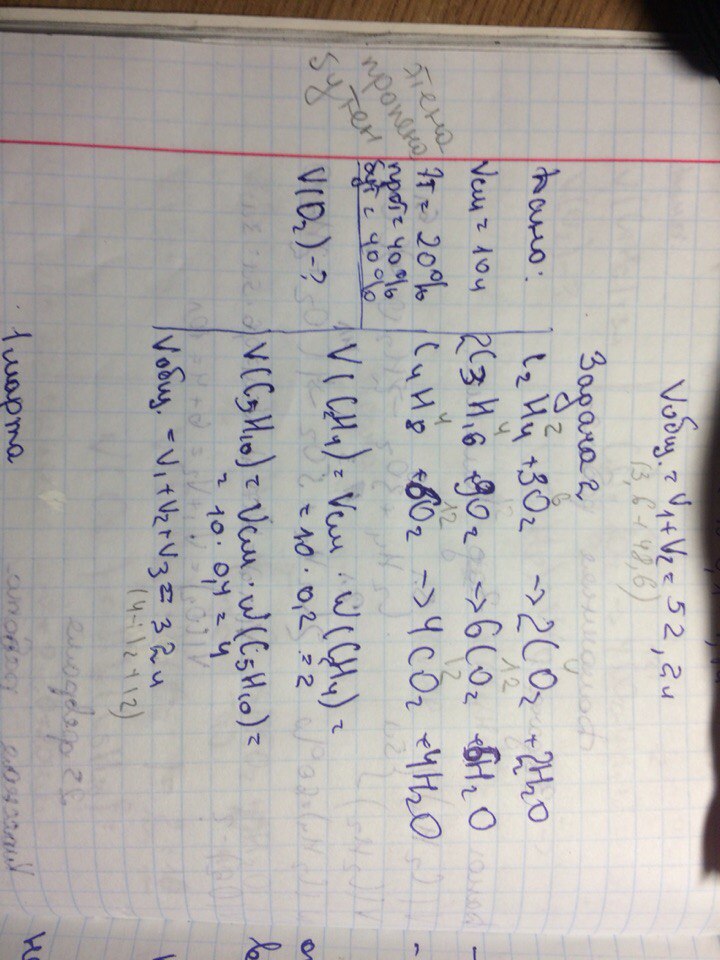 Vобщ. = V₁ + V₂ = 52,2 л
(3,6 + 48,6)
Задача 2
Дано:
Vсм = 10л
Эт = 20%
проп = 40%
бут = 40%
V(O₂) - ?
этена
пропена
бутен
C₂H₄ + 3O₂ → 2CO₂ + 2H₂O
2 6
2C3H6 + 9O₂ → 6CO₂ + 6H₂O
4 12
C₄H8 + 6O₂ → 4CO₂ + 4H₂O
4 12
V(CH₄) = Vсм · W(CH₄) =
= 10 · 0,2 = 2
V(C₅H₁₀) = Vсм · W(C₅H₁₀) =
= 10 · 0,4 = 4
Vобщ. = V₁ + V₂ + V₃ = 32 л
1 марта